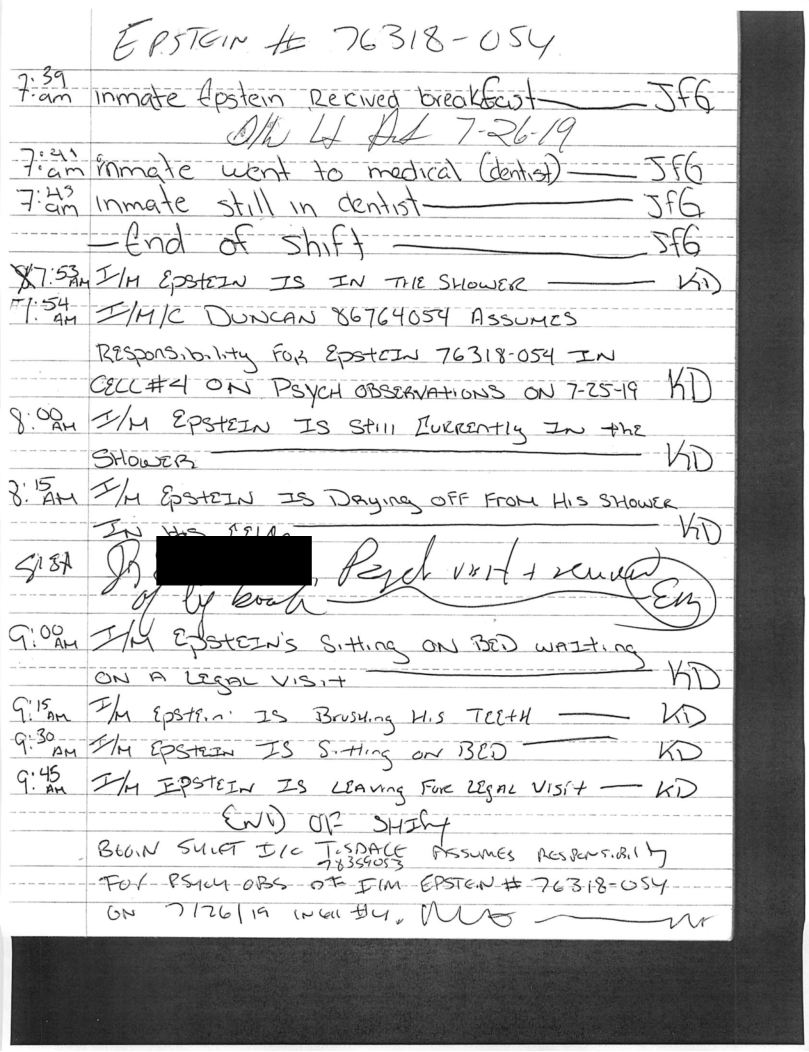 EPSTEIN # 76318-054
7:39 am Inmate Epstein Recived breakfast JfG
7-26-19
7:41 am inmate went to medical (dentist) JfG
7:43 am inmate still in dentist JfG
End of shift JfG
7:53 AM I/M EPSTEIN IS IN THE SHOWER KD
7:54 AM I/M/C DUNCAN 86764054 ASSUMES
RESponsibility FOR EpstEIN 76318-054 IN
CELL #4 ON PSYCH OBSERVATIONS ON 7-25-19 KD
8:00 AM I/M EPSTEIN IS Still CURRENtly IN the
SHOWER KD
8:15 AM I/M EPSTEIN IS DRying OFF FROM HIS SHOWER
IN HIS KD
Psych visit +
of
9:00 AM I/M EPSTEIN'S Sitting ON BED WAITING
ON A LEGAL VISIT KD
9:15 AM I/M Epstein IS Brushing HIS TEETH KD
9:30 AM I/M EPSTEIN IS Sitting ON BED KD
9:45 AM I/M EPSTEIN IS LEAving For LEgAL VISit KD
END OF SHIFT
BEGIN SHIFT I/C TISDALE ASSUMES RESPONSIBILITY
78359053
FOR PSYCH OBS OF I/M EPSTEIN # 76318-054
ON 7/26/19 IN CELL #4.